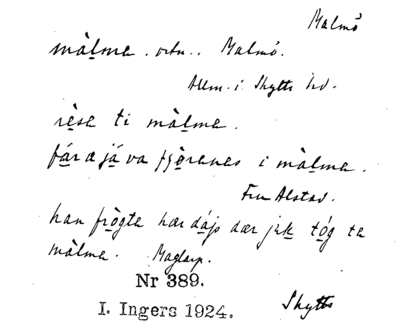 Malmö
màlma. ortn.. Malmö.
Allm. i Skytts hd.
rèsa ti màlma.
fár a já va fjòranes i màlma.
Fru Alstad.
han frògta hær dájs dær jik tóg ta
màlma. Maglarp.
Nr 389.
I. Ingers 1924. Skytts